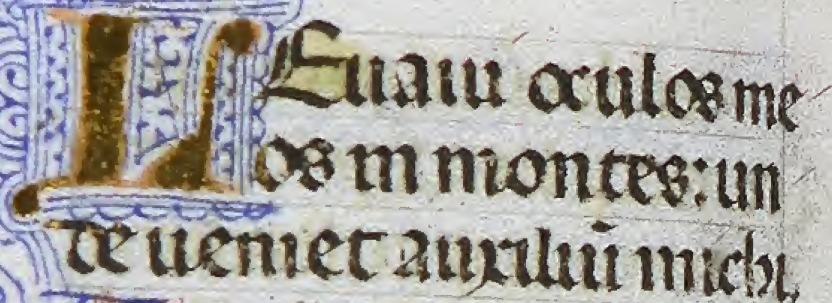 LEuaui oculos me
os in montes: un
de ueniet auxiliū michi.